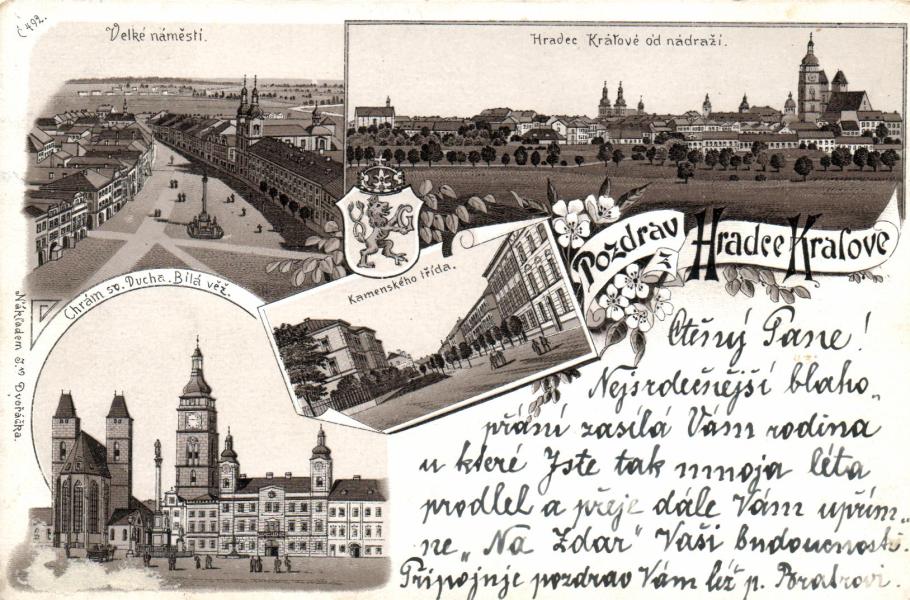 Č 492.
Velké náměstí.
Hradec Králové od nádraží.
G
Pozdrav
z
Hradce Králové
Kamenského třída.
Chrám sv. Ducha. Bílá věž.
Nákladem J. Dvořáčka.
Ctěný Pane!
Nejsrdečnější blaho„
přání zasílá Vám rodina
u které Jste tak mnoja léta
prodlel a přeje dále Vám upřím„
ne „Na Zdar" Vaší budoucnosti.
Připojuje pozdrav Vám též p. Bratrovi.